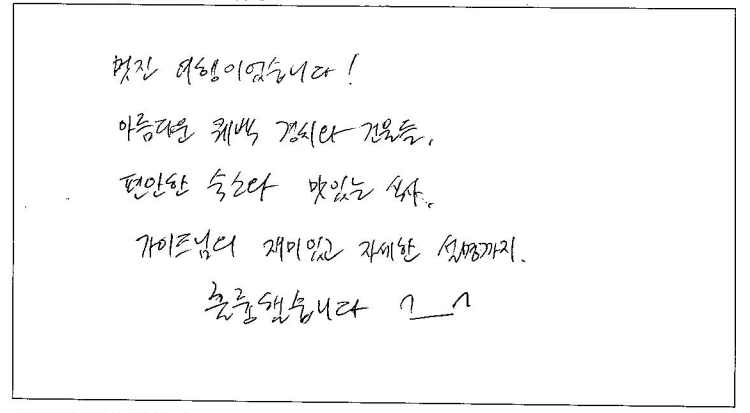 멋진 여행이었습니다!
아름다운 퀘백 경치와 건물들,
편안한 숙소와 맛있는 식사,
가이드님의 재미있고 자세한 설명까지.
훌륭했습니다 ^__^